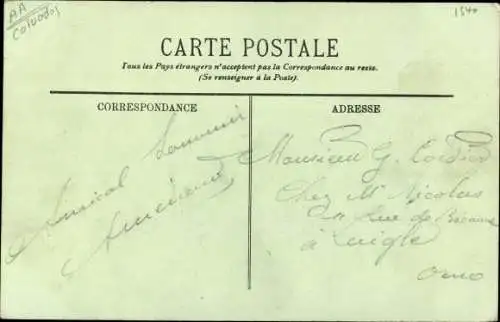 AA
Calvados
1540
CARTE POSTALE
Tous les Pays étrangers n'acceptent pas la Correspondance au recto.
(Se renseigner à la Poste).
CORRESPONDANCE
ADRESSE
Amical Souvenir
Monsieur G. Cordier
Chez Mr Nicolas
rue de
à Laigle
Orne